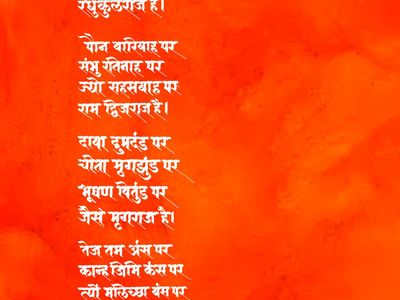 रघुकुलराज है।
पौन बारिबाह पर
संभु रतिनाह पर
ज्यों सहसबाह पर
राम द्विजराज है।
दावा द्रुमदंड पर
चीता मृगझुंड पर
भूषण वितुंड पर
जैसे मृगराज है।
तेज तम अंस पर
कान्ह जिमि कंस पर
त्यों मलिच्छ बंस पर